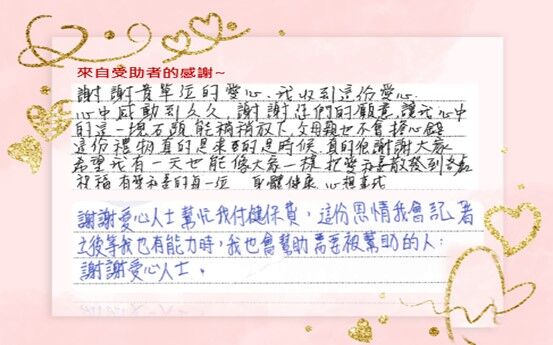 來自受助者的感謝~
謝謝貴單位的愛心、我收到這份愛心
心中感動到久久,謝謝你們的願意,讓我心中
的這一塊石頭能稍稍放下,父母親也不會擔心
這份禮物真的是來的是時候,真的很謝謝大家
希望我有一天也能像大家一樣把愛和善散發到
祝福有愛和善的每一位 身體健康 心想事成
謝謝愛心人士幫忙我付健保費,這份恩情我會記著
之後等我也有能力時,我也會幫助需要被幫助的人.
謝謝愛心人士。